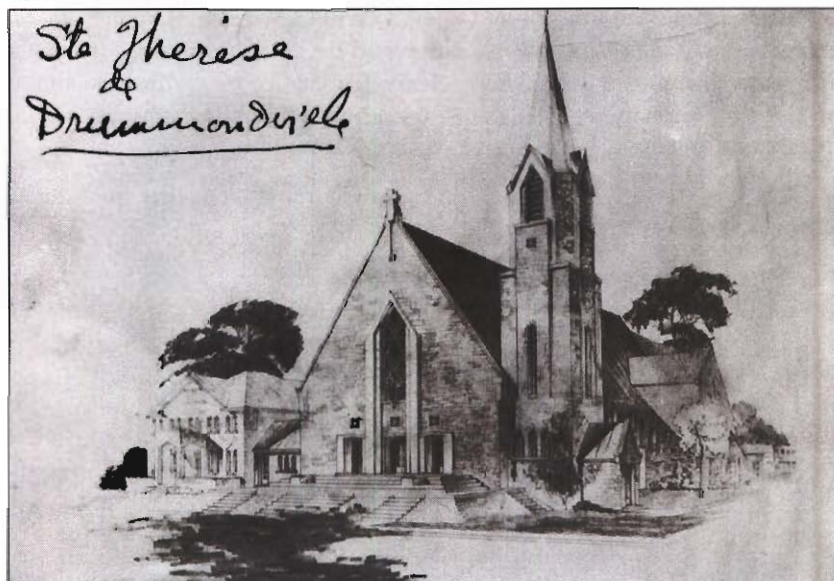 Ste Therese
de
Drummondville